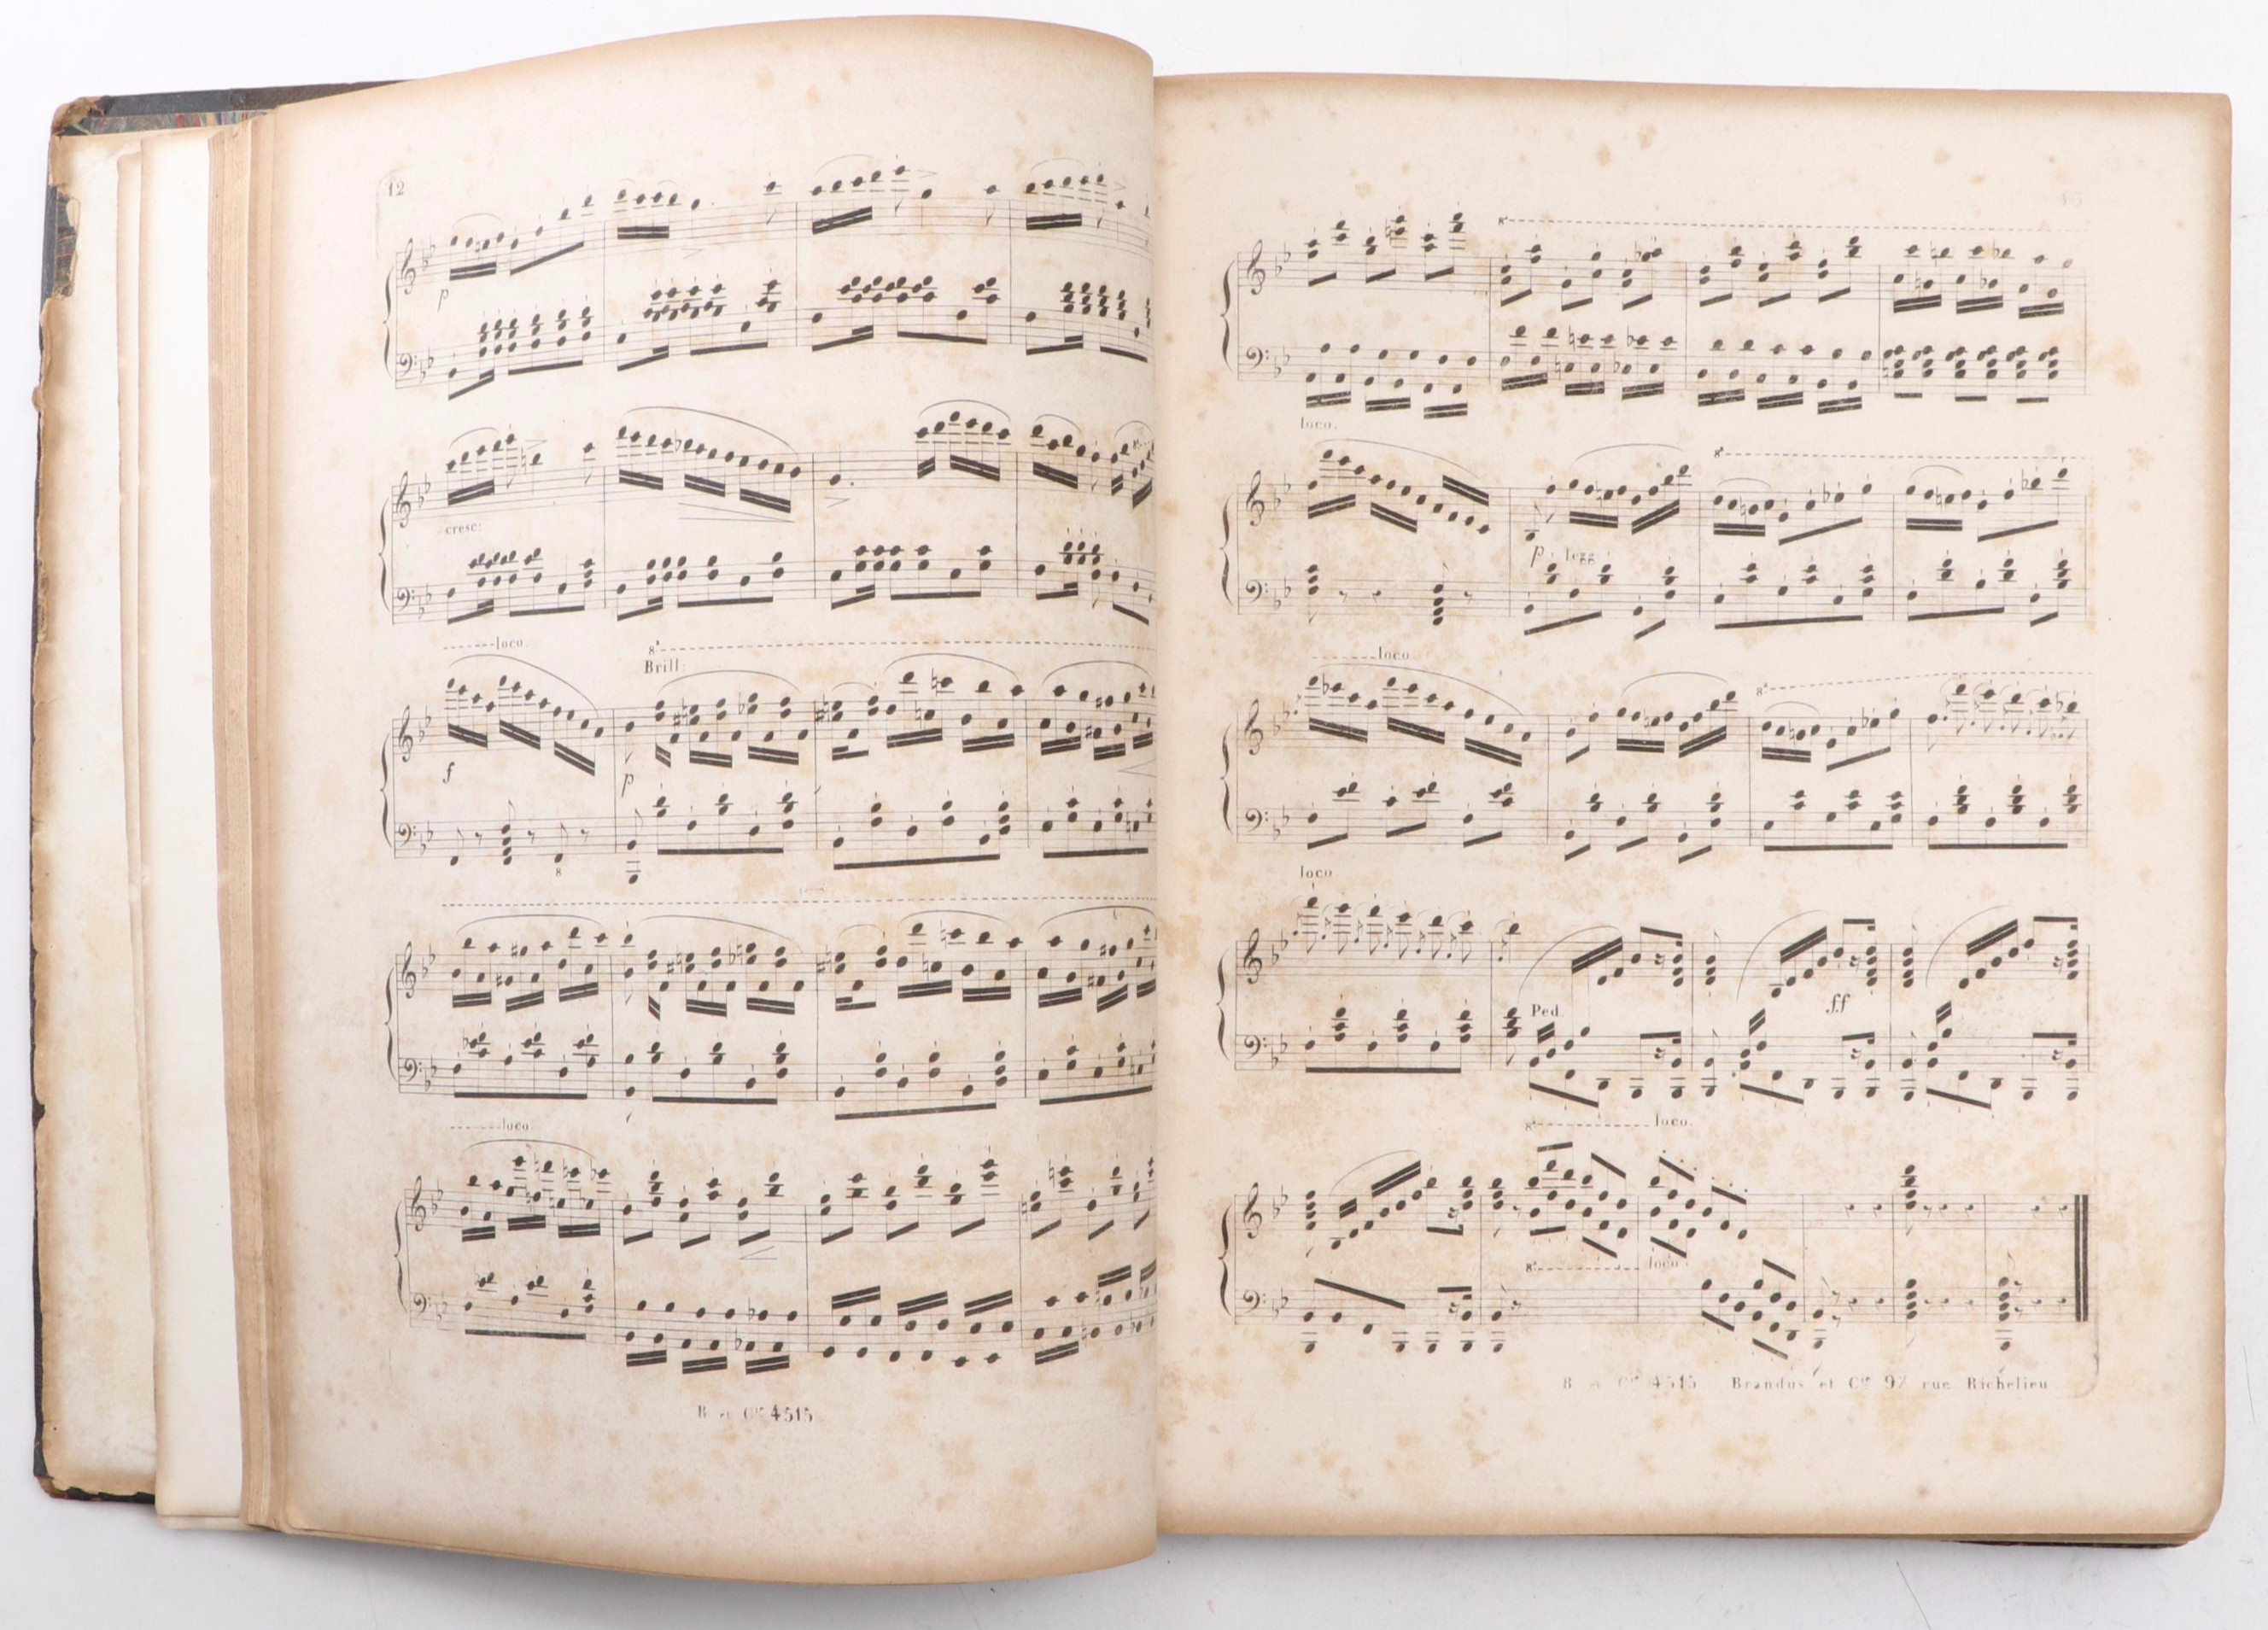 12
p
cresc:
loco.
8ª
Brill:
f
p
8
loco
B. et Cie 4515
8ª
loco.
8ª
p legg
loco
8ª
loco
Ped
ff
8ª loco.
8ª loco
B. et Cie 4515 Brandus et Cie 92 rue Richelieu